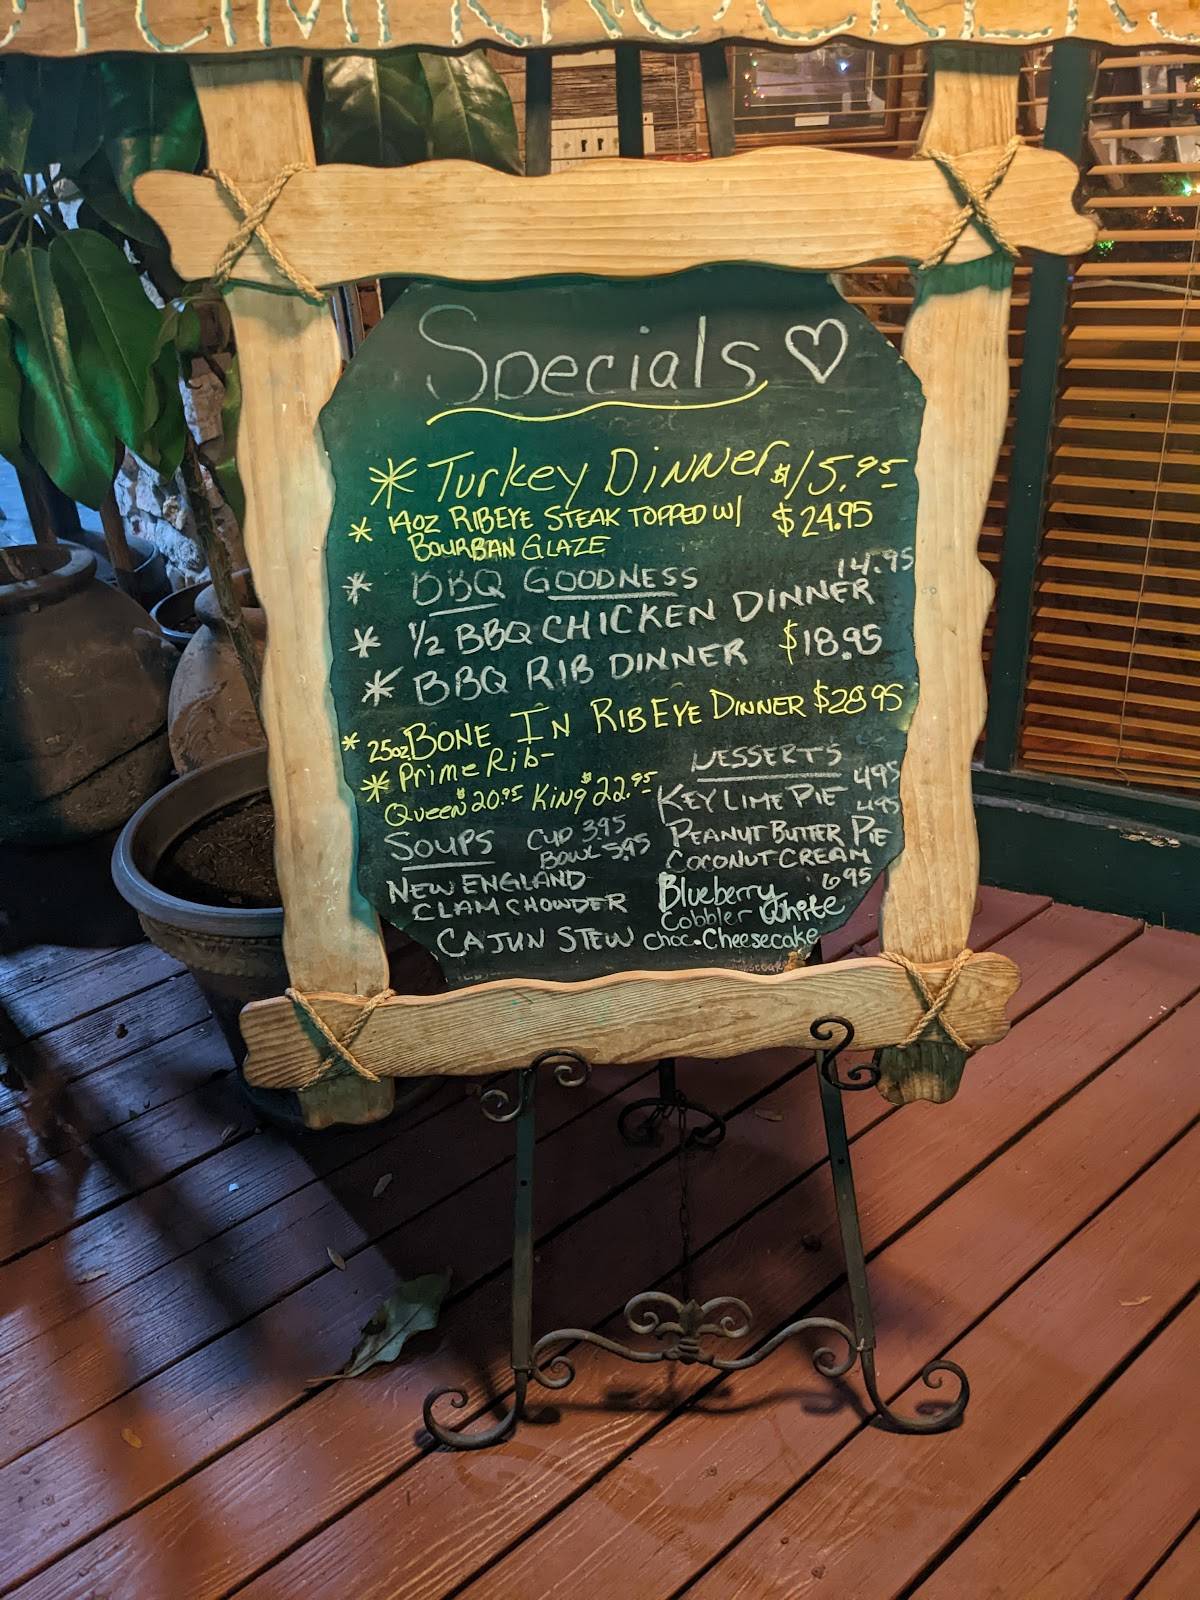 Specials ♡
* Turkey Dinner $15.95
* 14oz RIBEYE STEAK TOPPED W/ $24.95
BOURBAN GLAZE
* BBQ GOODNESS
14.95
* 1/2 BBQ CHICKEN DINNER
* BBQ RIB DINNER $18.95
* 25oz BONE IN RIBEYE DINNER $28.95
* Prime Rib-
Queen $20.95 King $22.95
SOUPS CUP 3.95
BOWL 5.95
NEW ENGLAND
CLAM CHOWDER
CAJUN STEW
DESSERTS
KEY LIME PIE 4.95
PEANUT BUTTER PIE 4.95
COCONUT CREAM
Blueberry 6.95
Cobbler White
Choc. Cheesecake